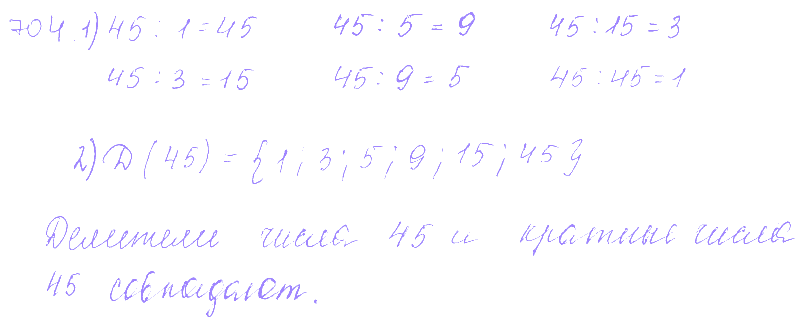 704. 1) 45 : 1 = 45 45 : 5 = 9 45 : 15 = 3
45 : 3 = 15 45 : 9 = 5 45 : 45 = 1
2) Д (45) = {1; 3; 5; 9; 15; 45}
Делители числа 45 и кратные числа
45 совпадают.